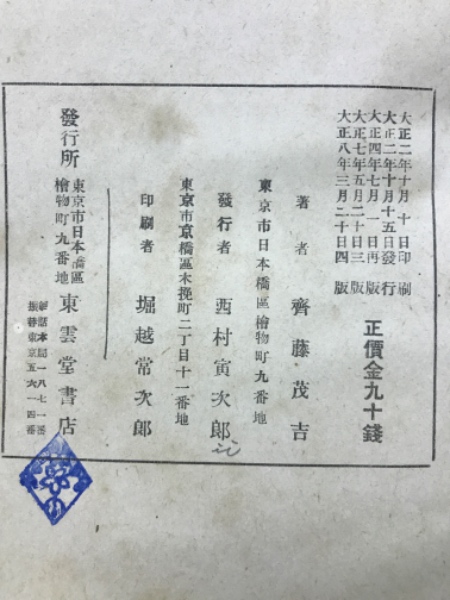 大正二年十月十日印刷
大正二年十月十五日發行
大正四年七月一日再版
大正七年五月二十日三版
大正八年三月二十日四版
正價金九十錢
著者 齊藤茂吉
東京市日本橋區檜物町九番地
發行者 西村寅次郎
東京市京橋區木挽町二丁目十一番地
印刷者 堀越常次郎
發行所
東京市日本橋區
檜物町九番地
東雲堂書店
電話本局一八七一番
振替東京五六一四番